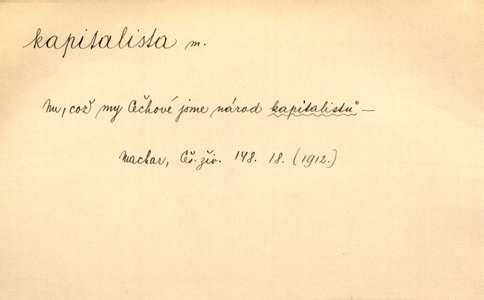 kapitalista m.
Nu, což my Čechové jsme národ kapitalistů —
Machar, Čes. živ. 148. 18. (1912.)